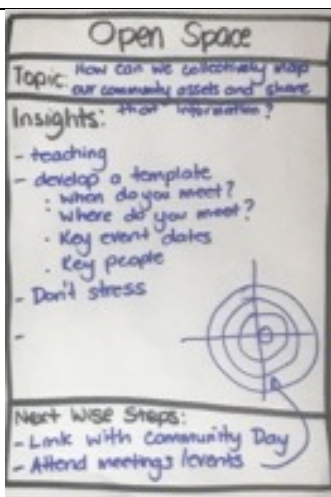 Open Space
Topic: How can we collectively map
our community assets and share
that information?
Insights:
- teaching
- develop a template
: when do you meet?
: where do you meet?
. Key event dates
. Key people
- Don't stress
-
Next Wise Steps:
- Link with Community Day
- Attend meetings / events